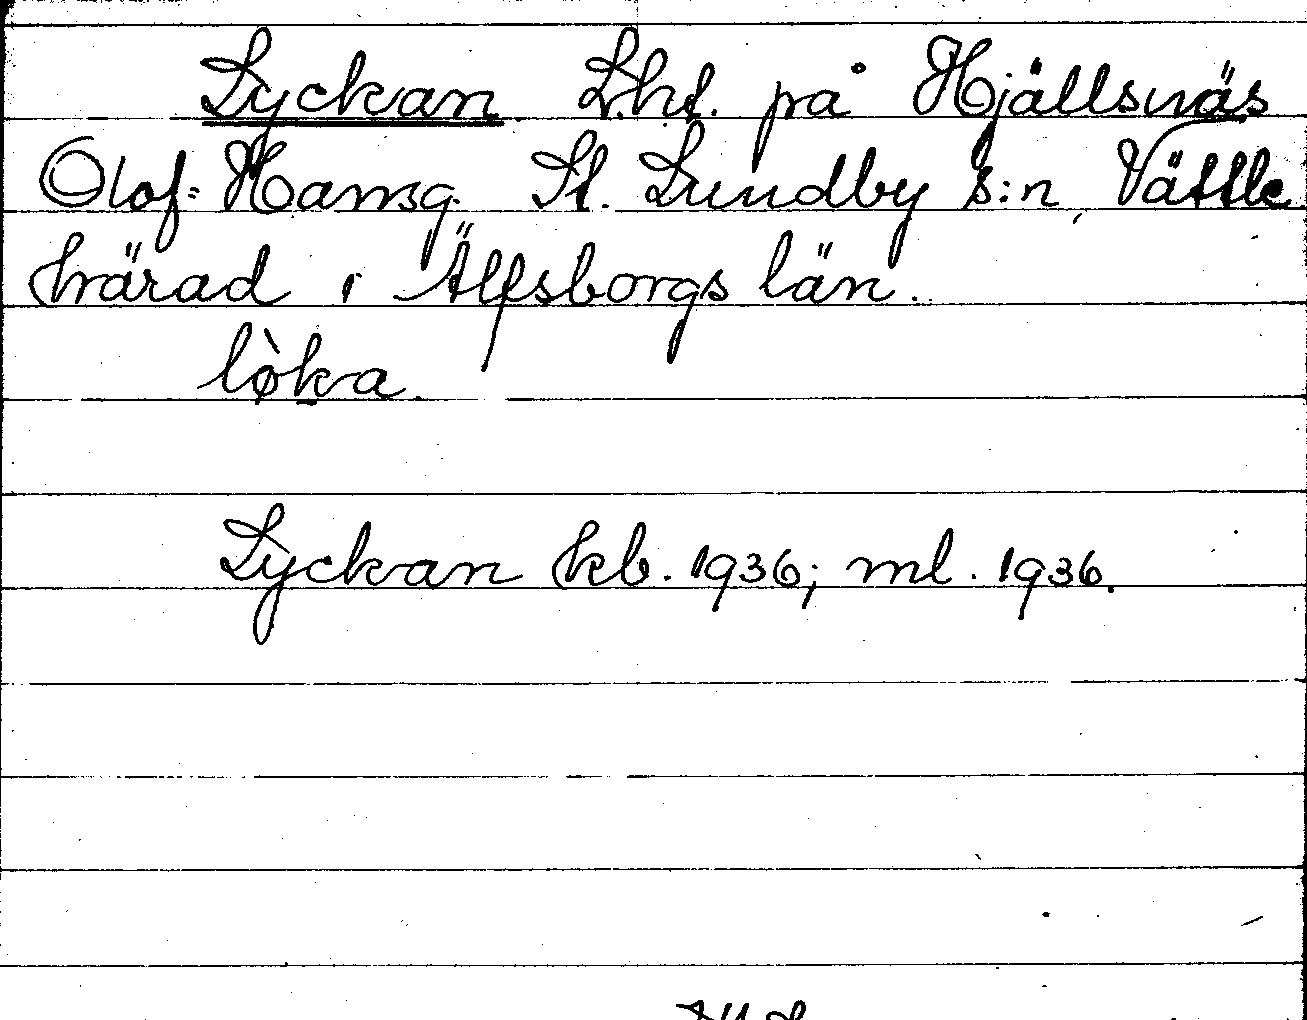 Lyckan Lht. på Hjällsnäs
Olof-Hansg. St. Lundby s:n, Vättle
härad i Älfsborgs län.
lø̀ka.
Lyckan kb. 1936; ml. 1936.